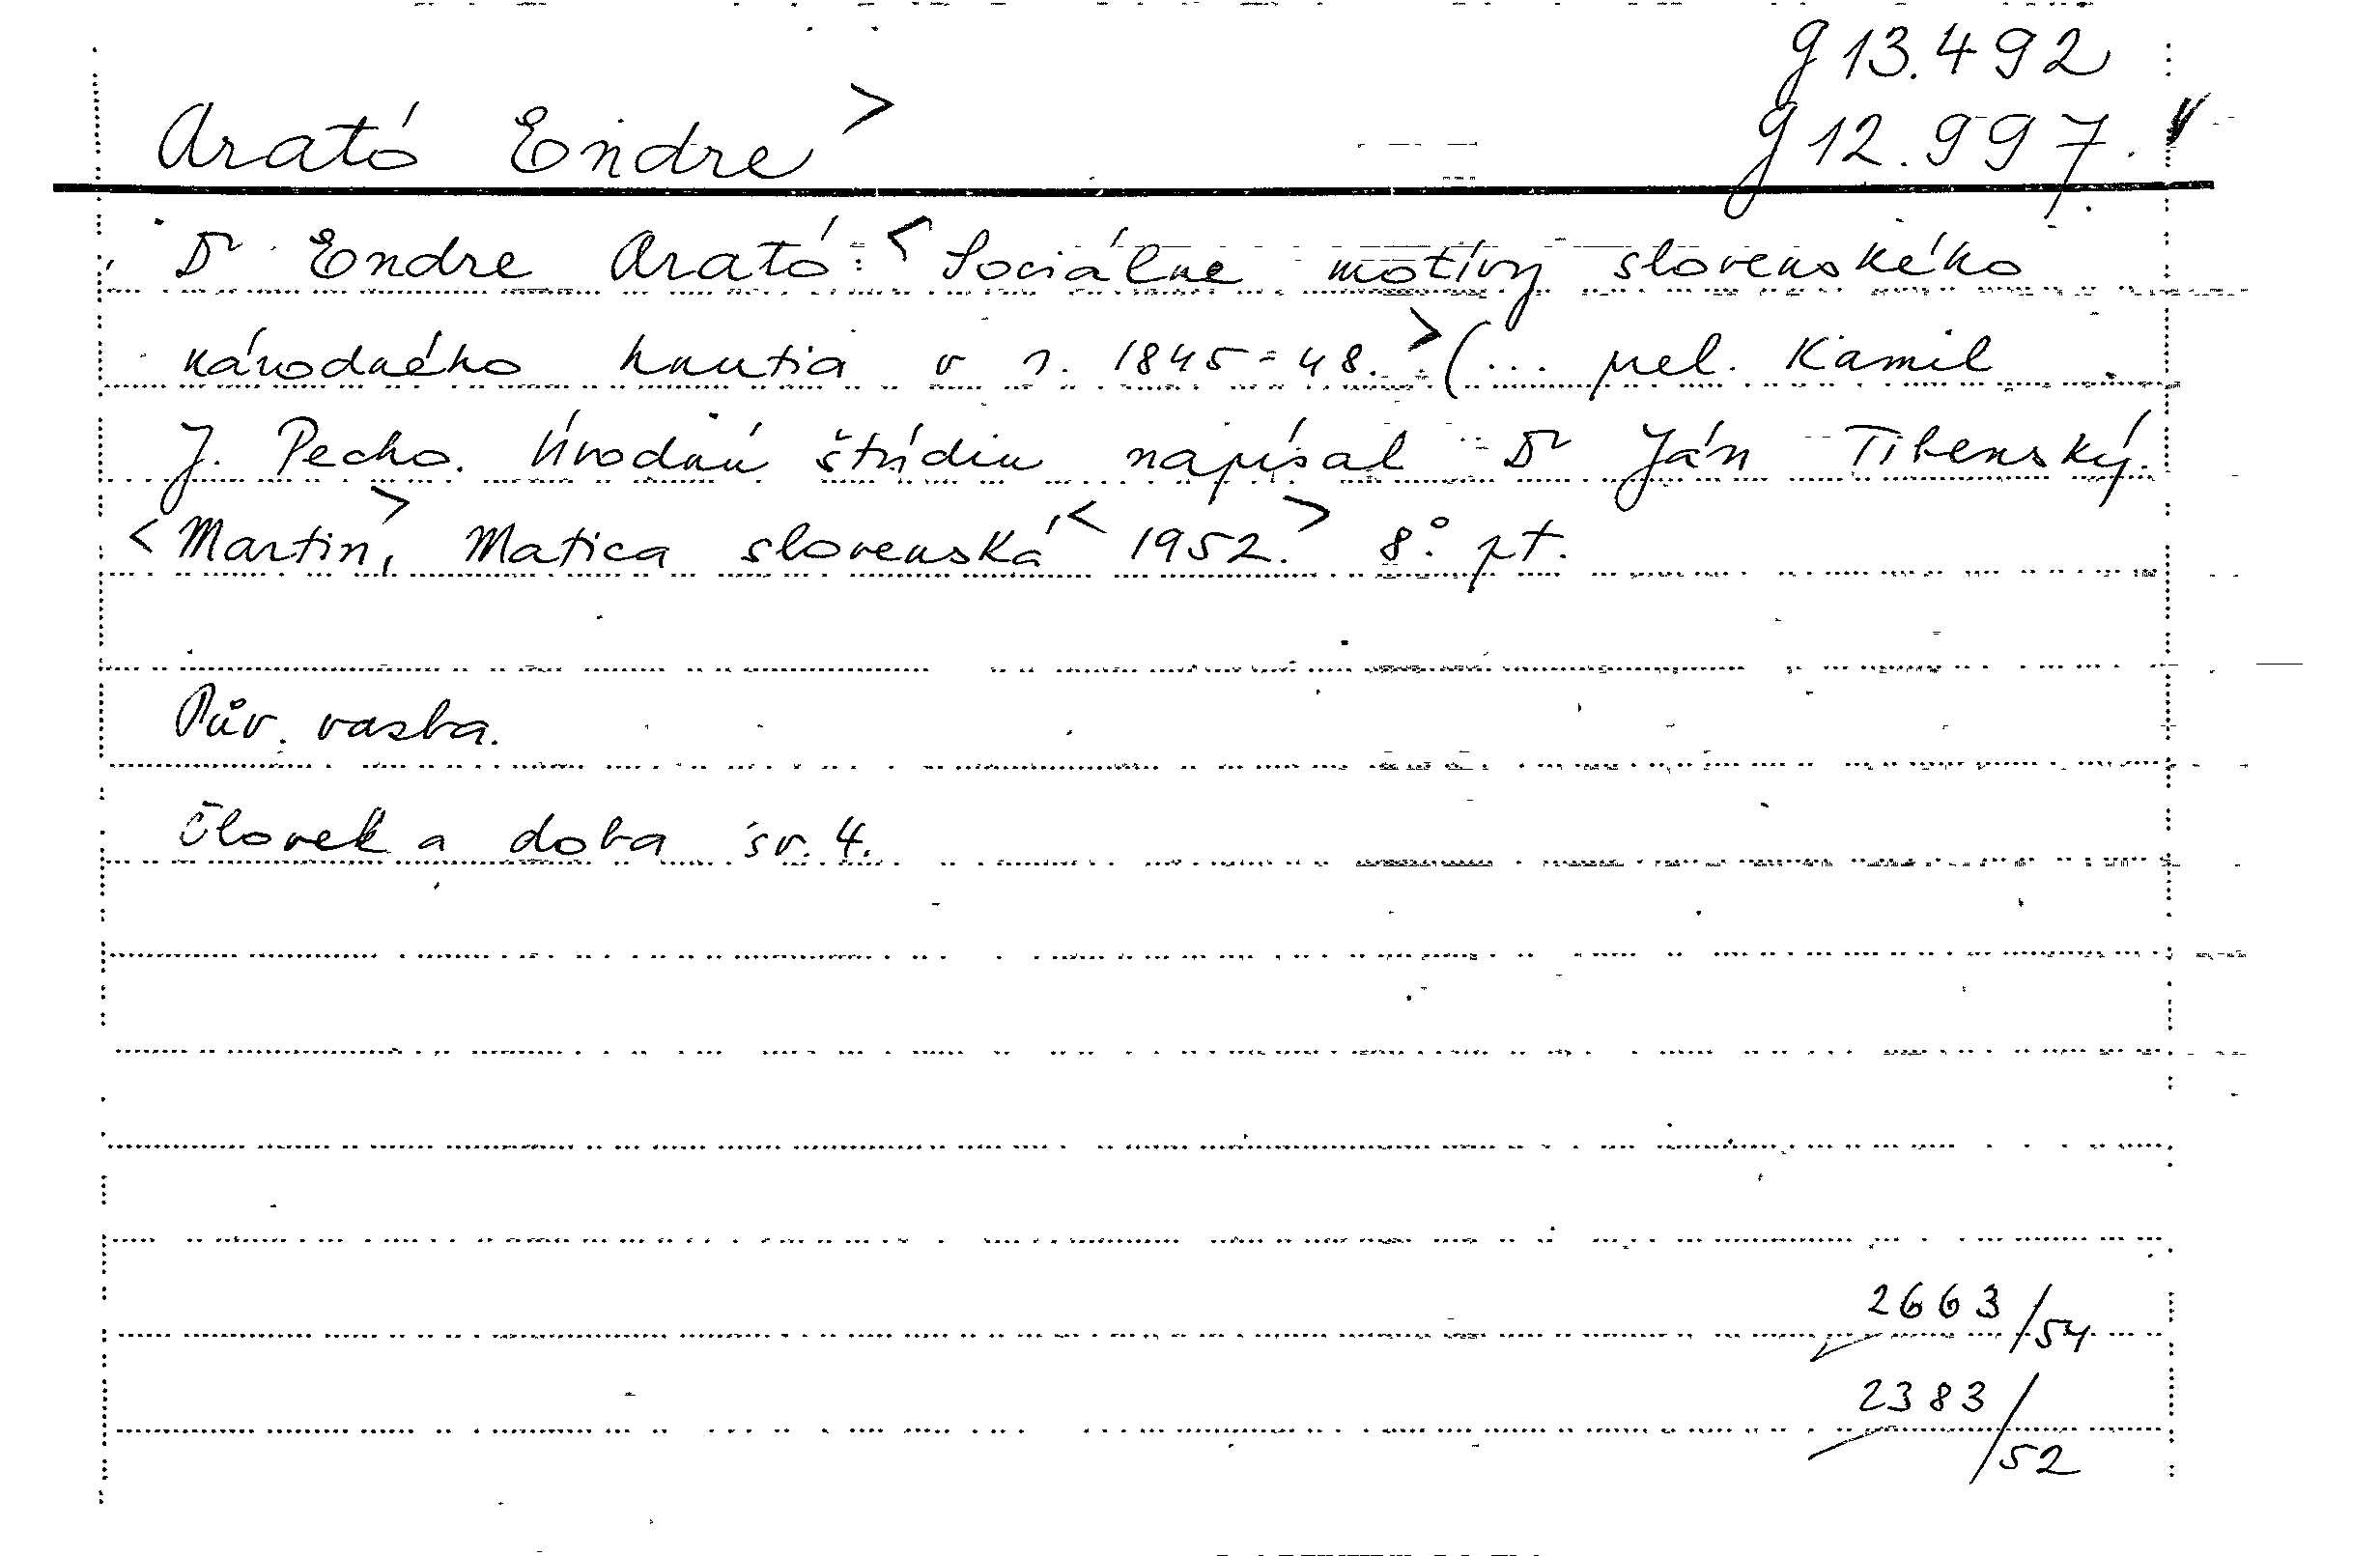 g 13.492
Arató Endre > g 12.997.
Dr Endre Arató: < Sociálne motívy slovenského
národného hnutia v r. 1845-48. > (... prel. Kamil
J. Pecho. Úvodnú štúdiu napísal Dr Ján Tibenský.
< Martin, > Matica slovenská, < 1952. > 8°. pt.
Pův. vazba.
Človek a doba sv. 4.
2663/54
2383/52